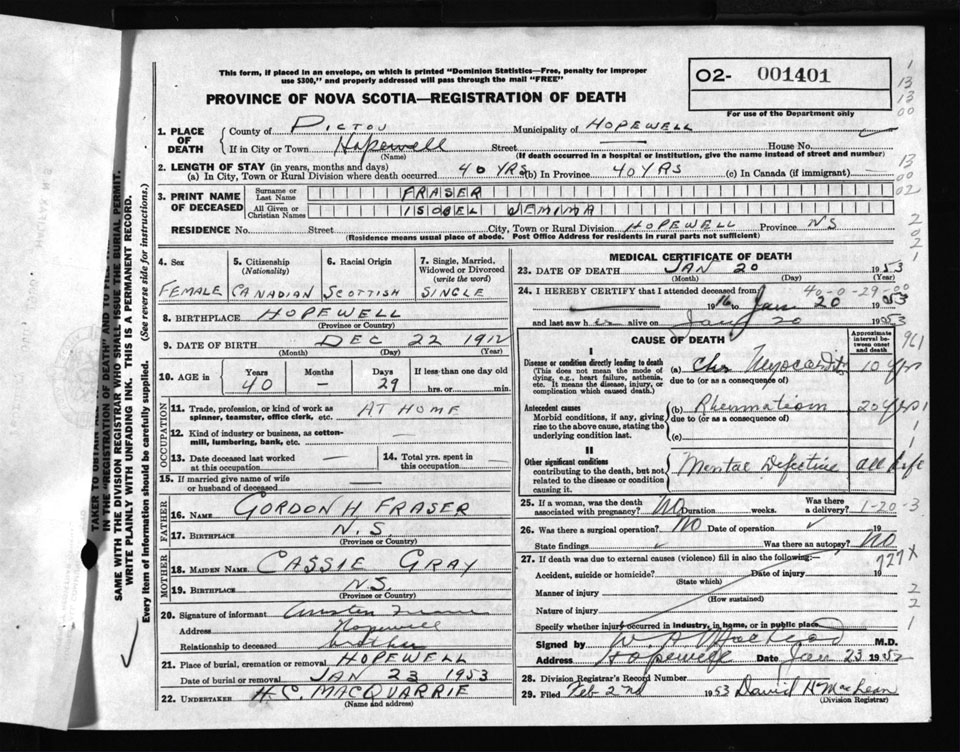 This form, if placed in an envelope, on which is printed "Dominion Statistics—Free, penalty for improper
use $300," and properly addressed will pass through the mail "FREE"
O2- 001401
For use of the Department only
PROVINCE OF NOVA SCOTIA—REGISTRATION OF DEATH
1. PLACE OF DEATH
County of PICTOU Municipality of HOPEWELL
If in City or Town Hopewell Street House No.
(Name) (If death occurred in a hospital or institution, give the name instead of street and number)
2. LENGTH OF STAY (in years, months and days)
(a) In City, Town or Rural Division where death occurred 40 YRS (b) In Province 40 YRS (c) In Canada (if immigrant) —
3. PRINT NAME OF DECEASED
Surname or Last Name FRASER
All Given or Christian Names ISOBEL JEMIMA
RESIDENCE No. Street City, Town or Rural Division HOPEWELL Province NS
(Residence means usual place of abode. Post Office Address for residents in rural parts not sufficient)
4. Sex FEMALE
5. Citizenship (Nationality) CANADIAN
6. Racial Origin SCOTTISH
7. Single, Married, Widowed or Divorced (write the word) SINGLE
8. BIRTHPLACE HOPEWELL
(Province or Country)
9. DATE OF BIRTH DEC 22 1912
(Month) (Day) (Year)
10. AGE in Years 40 Months — Days 29 If less than one day old hrs. or min.
OCCUPATION
11. Trade, profession, or kind of work as spinner, teamster, office clerk, etc. AT HOME
12. Kind of industry or business, as cotton-mill, lumbering, bank, etc. —
13. Date deceased last worked at this occupation — 14. Total yrs. spent in this occupation —
15. If married give name of wife or husband of deceased —
FATHER
16. NAME GORDON H FRASER
17. BIRTHPLACE N.S.
(Province or Country)
MOTHER
18. MAIDEN NAME CASSIE GRAY
19. BIRTHPLACE N.S.
(Province or Country)
20. Signature of informant
Address Hopewell
Relationship to deceased brother
21. Place of burial, cremation or removal HOPEWELL
Date of burial or removal JAN 23 1953
22. UNDERTAKER H.C. MACQUARRIE
(Name and address)
MEDICAL CERTIFICATE OF DEATH
23. DATE OF DEATH JAN 20 1953
(Month) (Day) (Year)
40-0-29-00
24. I HEREBY CERTIFY that I attended deceased from
19 to Jan 20 1953
and last saw her alive on Jan 20 1953
CAUSE OF DEATH
Approximate interval between onset and death
I
Disease or condition directly leading to death
(This does not mean the mode of dying, e.g., heart failure, asthenia, etc. It means the disease, injury, or complication which caused death.)
(a) Chr Myocarditis 10 yrs
due to (or as a consequence of)
Antecedent causes
Morbid conditions, if any, giving rise to the above cause, stating the underlying condition last.
(b) Rheumatism 20 yrs
due to (or as a consequence of)
(c)
II
Other significant conditions
contributing to the death, but not related to the disease or condition causing it.
Mental Defective all life
25. If a woman, was the death associated with pregnancy? No Duration weeks. Was there a delivery? 1-20-3
26. Was there a surgical operation? No Date of operation 19
State findings Was there an autopsy? No
27. If death was due to external causes (violence) fill in also the following:
Accident, suicide or homicide? Date of injury 19
(State which)
Manner of injury
(How sustained)
Nature of injury
Specify whether injury occurred in industry, in home, or in public place
Signed by W. A MacLeod M.D.
Address Hopewell Date Jan 23 1953
28. Division Registrar's Record Number
29. Filed Feb 2nd 1953 David H MacLean
(Division Registrar)
IN THE "REGISTRATION OF DEATH" AND TO
SAME WITH THE DIVISION REGISTRAR WHO SHALL ISSUE THE BURIAL PERMIT.
WRITE PLAINLY WITH UNFADING INK. THIS IS A PERMANENT RECORD.
Every item of Information should be carefully supplied. (See reverse side for instructions.)